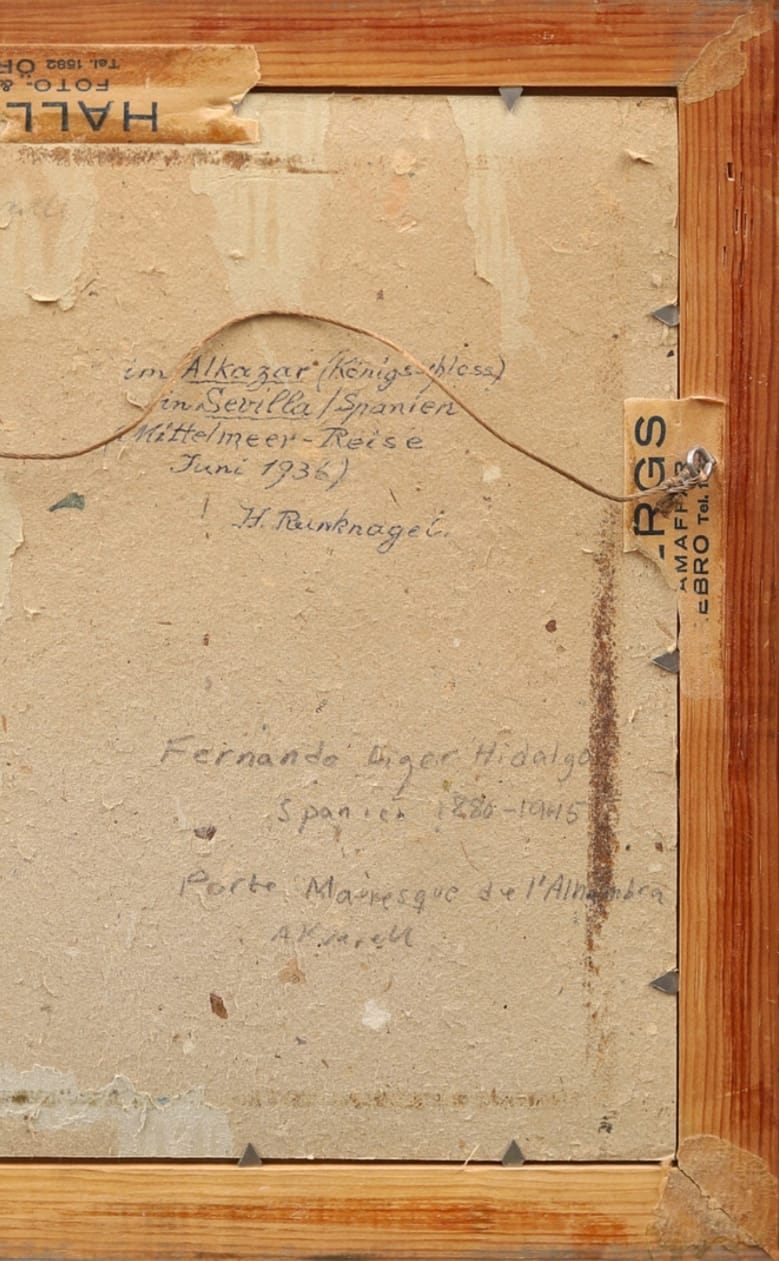 HALL
FOTO- &
Tel. 1582
im Alkazar (Königsschloss)
in Sevilla / Spanien
(Mittelmeer-Reise
Juni 1936)
-RGS
AMAFF
EBRO Tel.
Fernando Liger Hidalgo
Spanien 1880-1945
Porte Mauresque de l'Alhambra
Akvarell